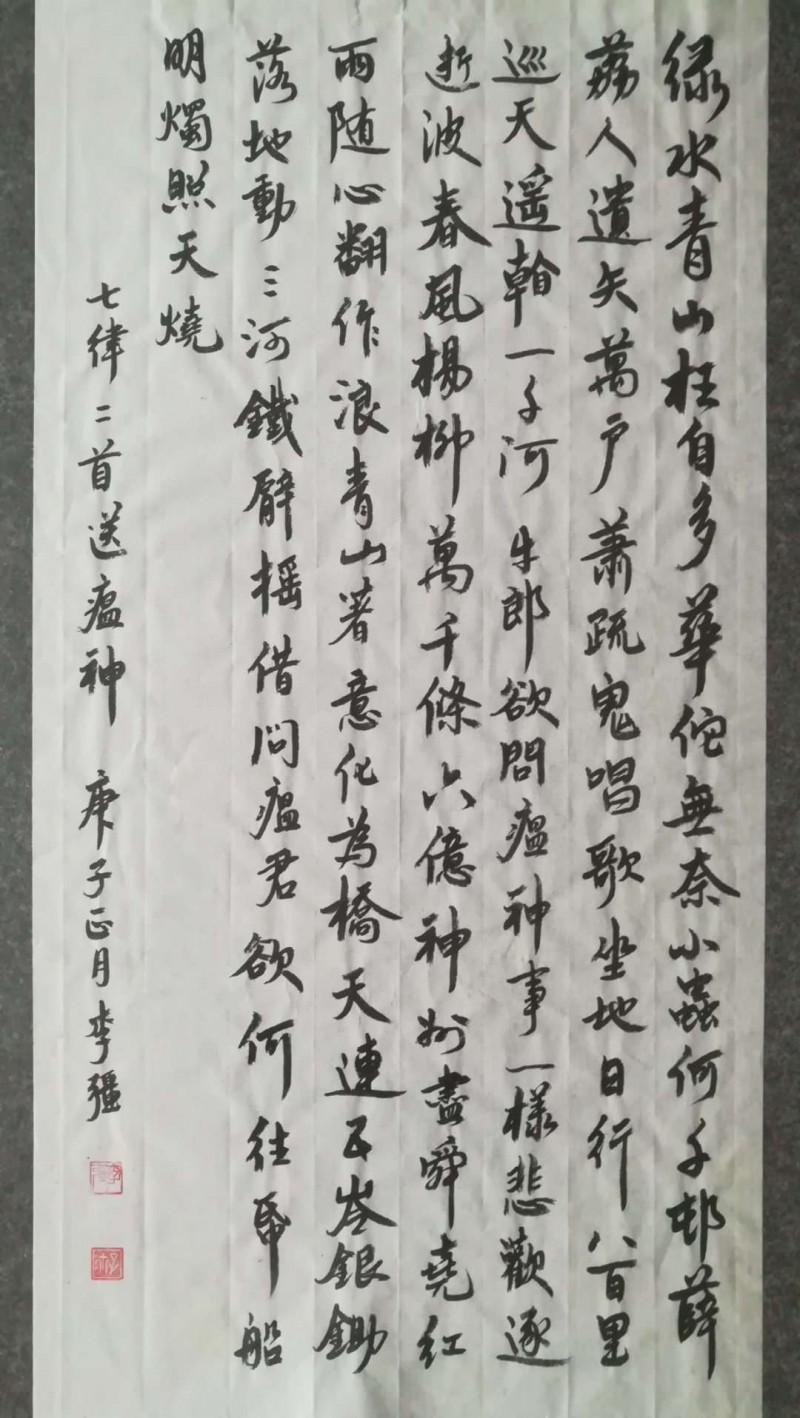 绿水青山枉自多華佗無奈小蟲何千邨薜
荔人遺矢萬户萧疏鬼唱歌坐地日行八百里
巡天遥翰一千河牛郎欲問瘟神事一樣悲歡逐
逝波春風楊柳萬千條六億神州盡舜堯紅
雨随心翻作浪青山著意化為橋天連五岺銀鋤
落地動三河鐵臂摇借问瘟君欲何往帋船
明燭照天燒
七律二首送瘟神 庚子正月李疆